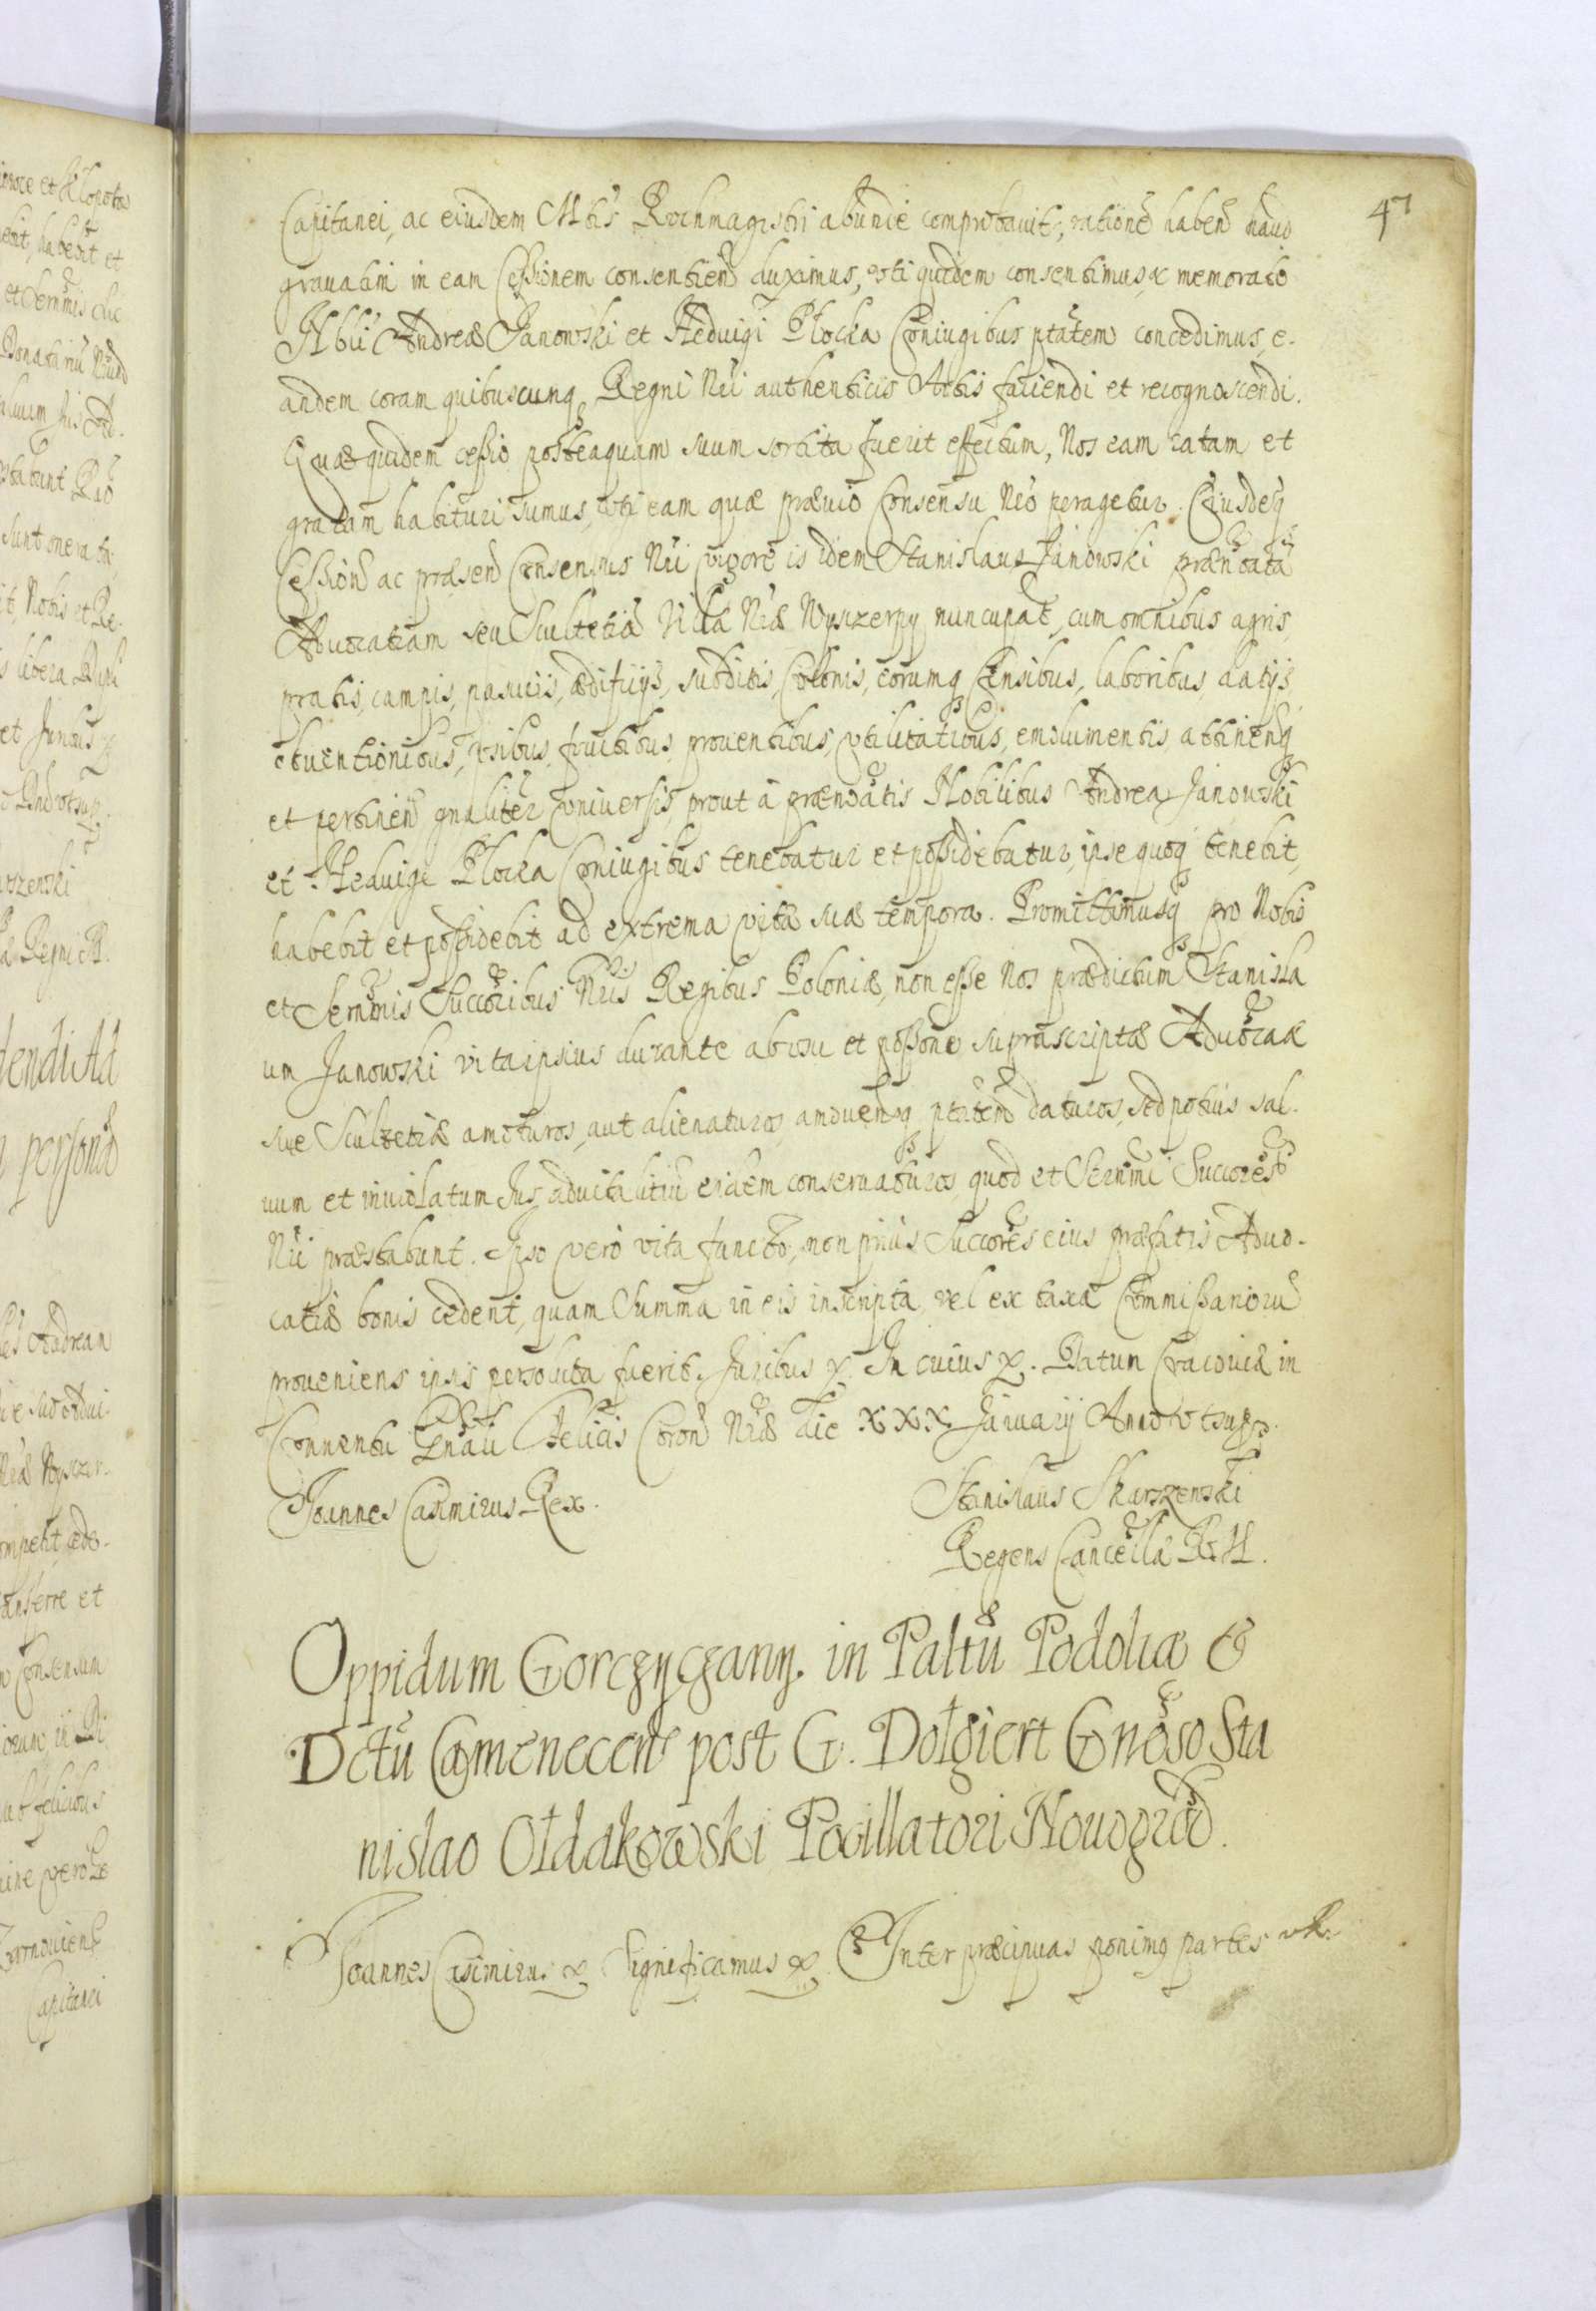 47
Capitanei, ac eiusdem Mtis Rochmagistri abunde comprobauit, rationē habeñ haud
grauatim in eam Cessionem consentieñ duximus, vti quidem consentimus, ac memorato
Nbli Andreæ Janowski et Heduigi Plocka Coniugibus ptatem concedimus, e-
andem coram quibuscunq Regni Nri authenticis Actis faciendi et recognoscendi.
Quæ quidem cessio posteaquam suum sortita fuerit effectum, Nos eam ratam et
gratam habituri sumus, vti eam quæ præuio Consensu Nro peragetur. Eiusdeq
Cessionis ac præsen Consensus Nri vigore is idem Stanislaus Janowski prænotatā
Aduocatiam seu Scultetiā Villæ Nræ Wyszerpy nuncupat, cum omnibus agris,
pratis, campis, pascuis, ædificijs, subditis, Colonis, eorumq Censibus, laboribus, datijs,
obuentionibus, vsibus, fructibus, prouentibus, vtilitatibus, emolumentis attineñq
et pertineñ gnaliter vniuersis, prout à prænotatis Nobilibus Andrea Janowski
et Heduige Plocka Coniugibus tenebatur et possidebatur, ipse quoq tenebit,
habebit et possidebit ad extrema vitæ suæ tempora. Promittimusq pro Nobis
et Sernmis Succoribus Nris Regibus Poloniæ, non esse Nos prædictum Stanisla
um Janowski vita ipsius durante ab vsu et possone suprascriptæ Aduocae
siue Scultetiæ amoturos, aut alienaturos, amouenq ptatem daturos, sed potius sal-
uum et inuiolatum Jus aduitalitiū eidem conseruaturos, quod et Sernmi Succores
Nri præstabunt. Ipso vero vita functo, non prius Succores eius præfatis Aduo-
catiæ bonis cedent, quam Summa in eis inscripta, vel ex taxa Commissariorū
proueniens ipsis persoluta fuerit. Juribus &. In cuius &. Datum Cracouiæ in
Conuentu Gnali Felicis Coron Nræ die XXX. January Anno vt supra.
Joannes Casimirus Rex.
Stanislaus Skarszewski
Regens Cancellæ R. M.
Oppidum Gorczyczany in Paltū Podoliæ &
Dctū Camenecen post G. Dołgiert Gnoso Sta
nislao Ołdakowski Pocillatori Nouogrod.
Joannes Casimirus & Significamus & Inter præcipuas ponimq partes